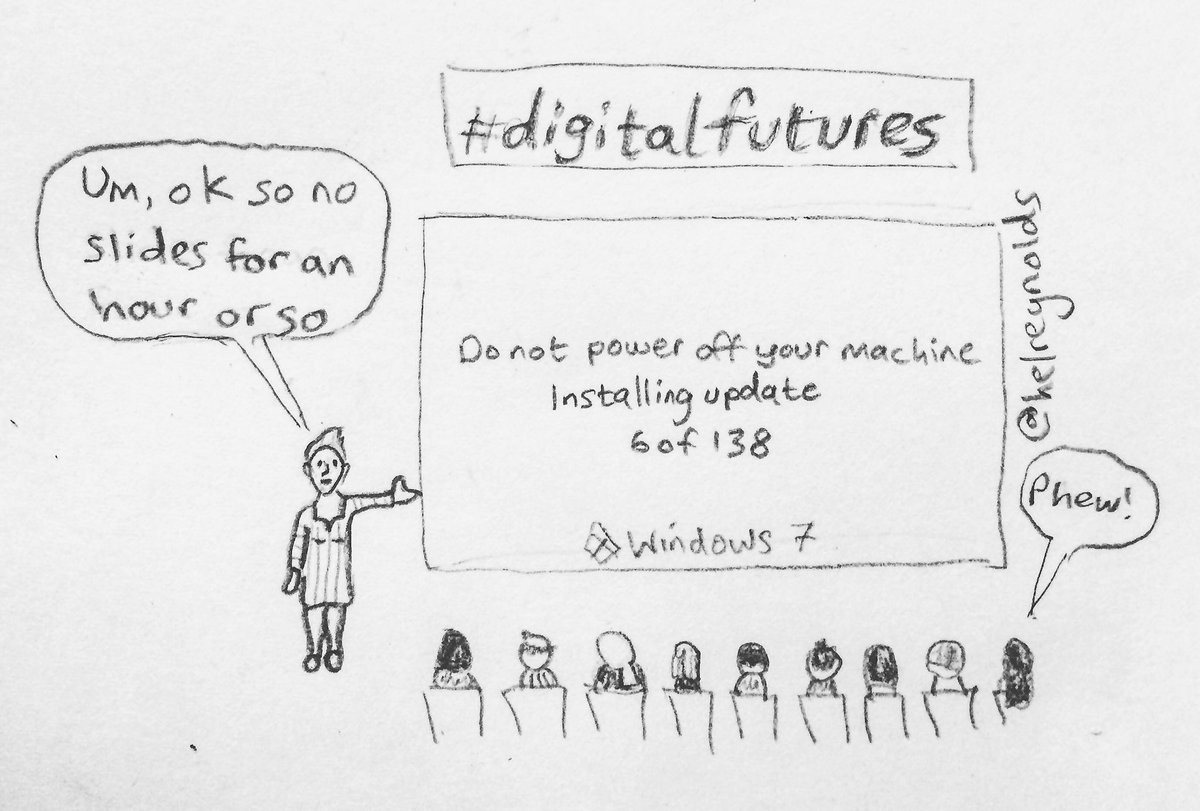 #digitalfutures
Um, ok so no
slides for an
hour or so
Do not power off your machine
Installing update
6 of 138
Windows 7
@helreynolds
Phew!